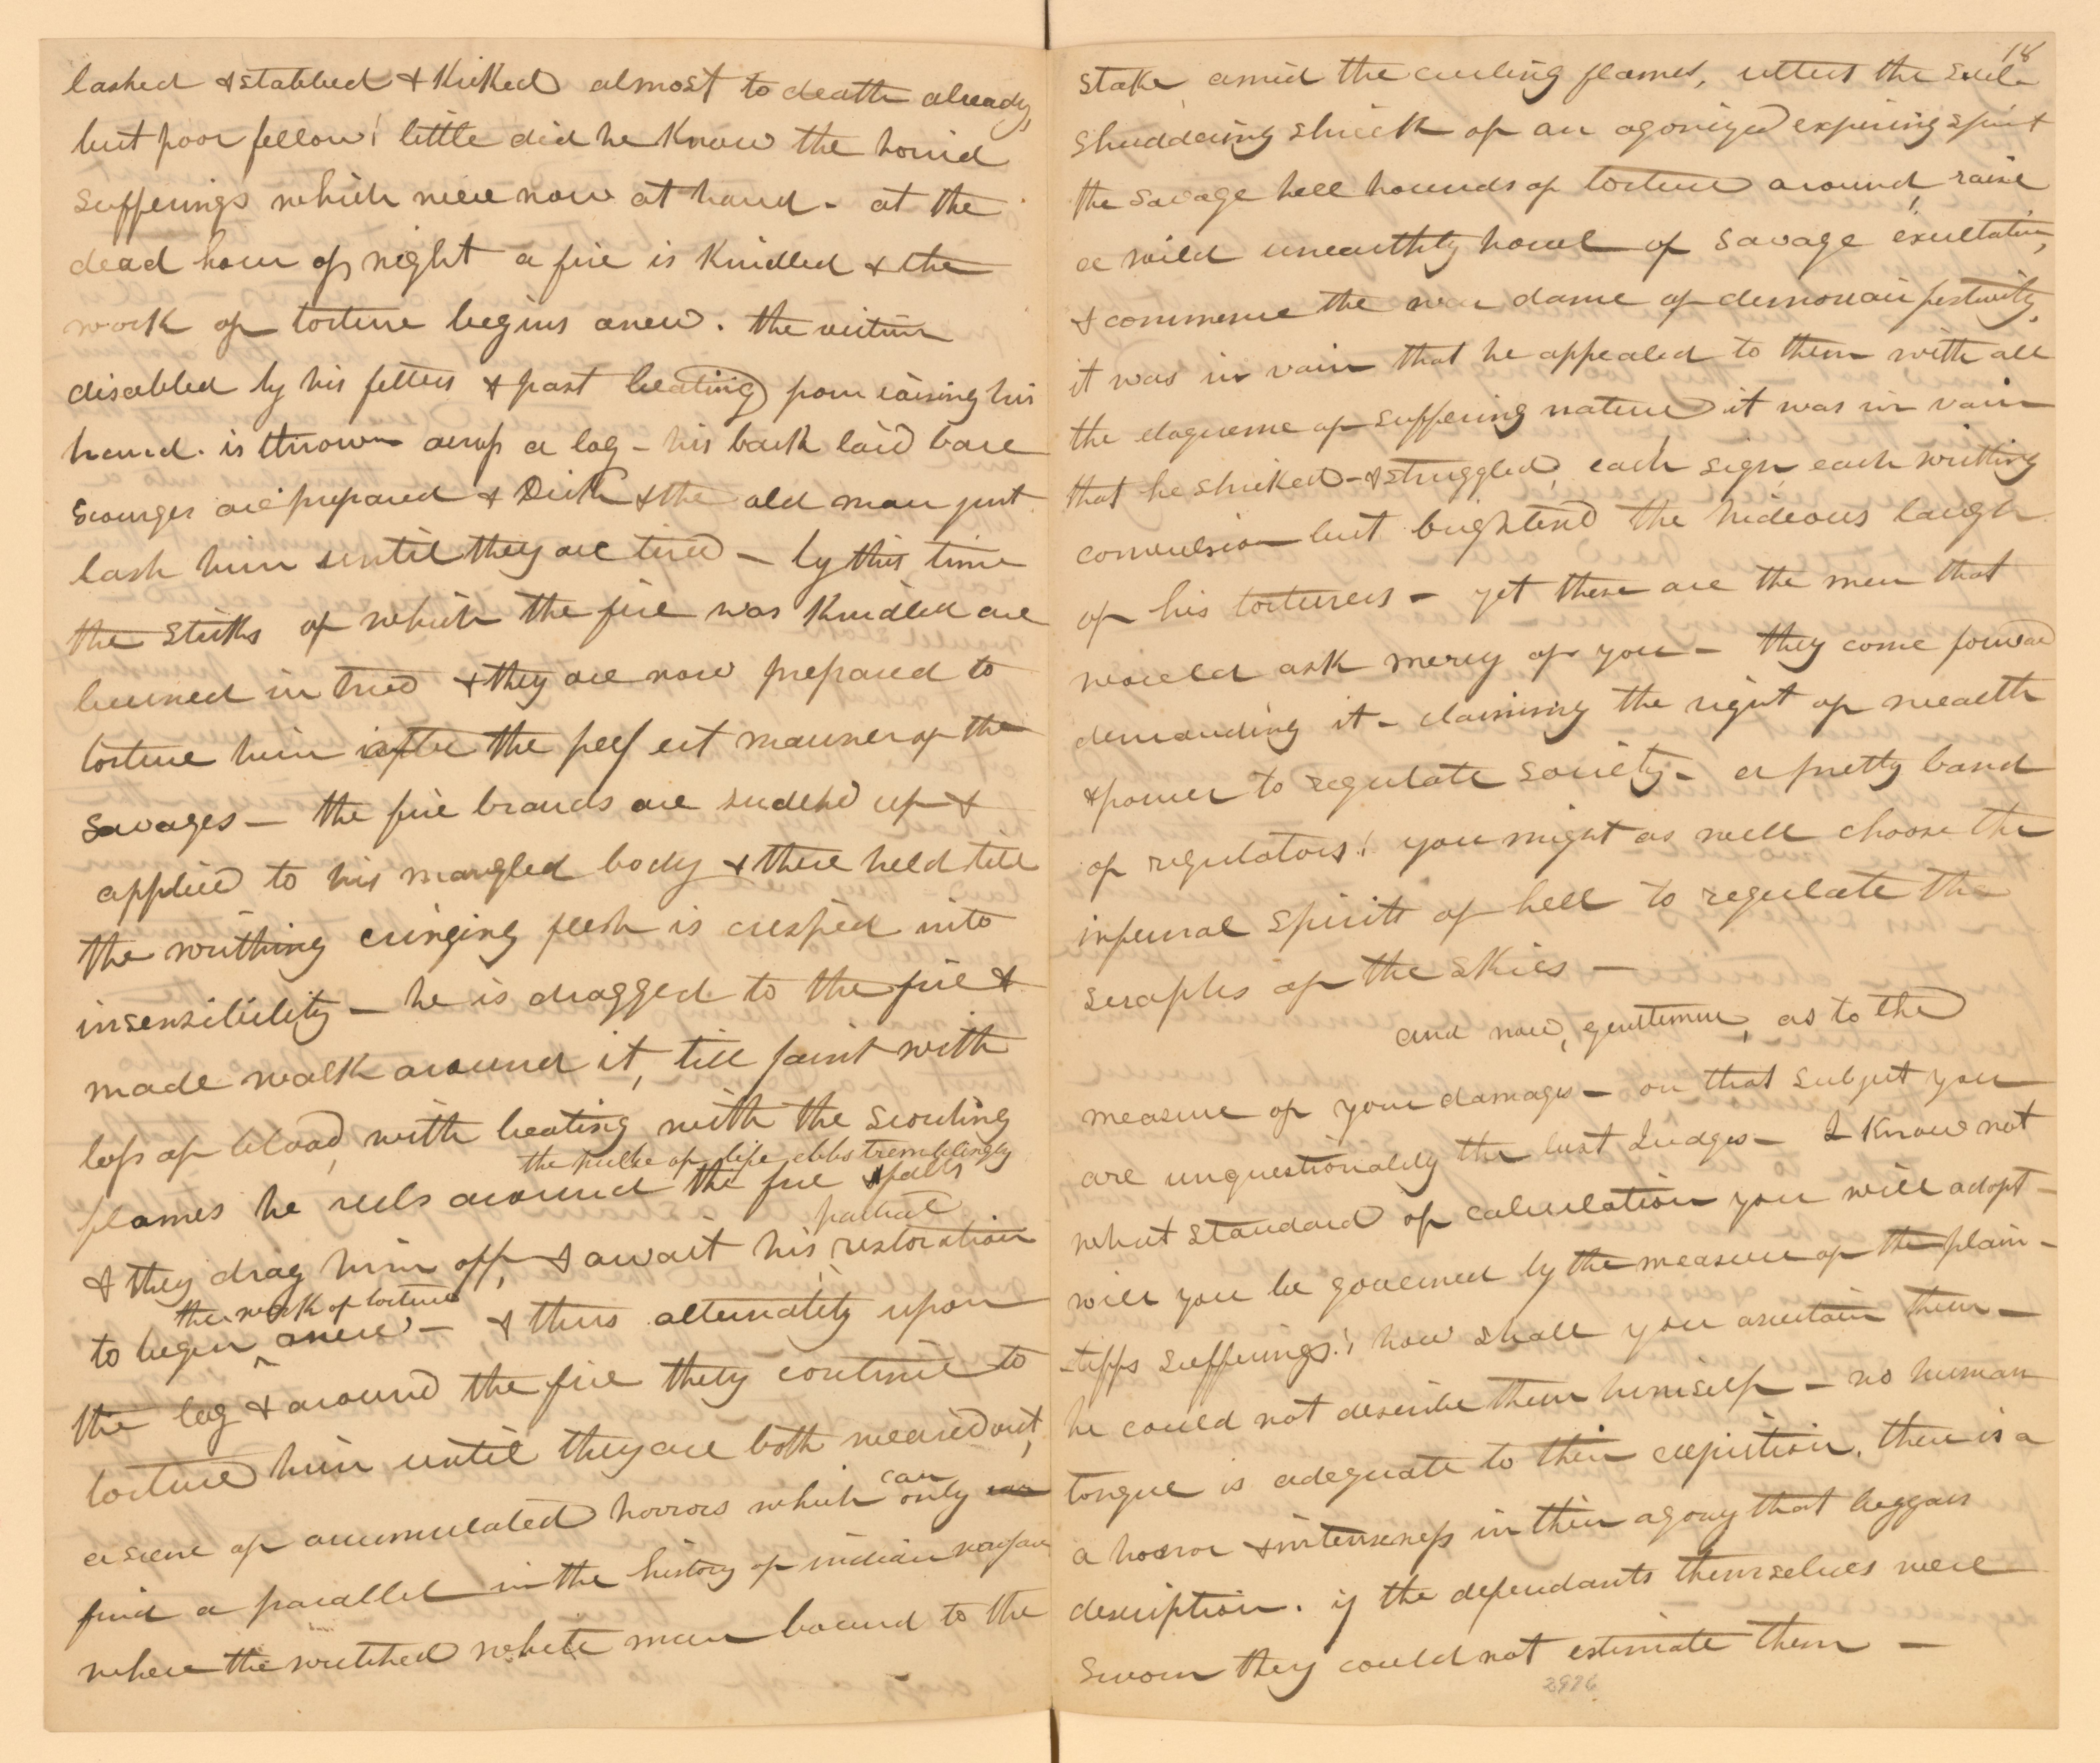 lashed & stabbed & kicked almost to death already,
but poor fellow! little did he know the horrid
sufferings which were now at hand - at the
dead hour of night a fire is kindled & the
work of torture begins anew. the victim
disabled by his fetters & past beating from raising his
hand. is thrown across a log - his back laid bare
scourges are prepared & Dick & the old man just
lash him until they are tired - by this time
the sticks of which the fire was kindled are
burned in two & they are now prepared to
torture him after the perfect manner of the
savages - the fire brands are up &
applied to his mangled body & there held till
the writhing cringing flesh is crisped into
insensibility - he is dragged to the fire &
made walk around it, till faint with
loss of blood, with beating with the scorching
the pulse of life ebbs tremblingly
flames he reels around the fire & falls
partial
& they drag him off, & await his restoration
the work of torture
to begin anew - & thus alternately upon
the log & around the fire they continue to
torture him until they are both wearied out,
can
a scene of accumulated horrors which only can
find a parallel in the history of indian warfare
where the wretched white man bound to the
18
stake amid the curling flames, utters the soul
shuddering shriek of an agonized expiring spirit
the savage hell hounds of torture around, raise
a wild unearthly howl of savage exultation,
& commence the war dance of demoniac festivity,
it was in vain that he appealed to them with all
the eloquence of suffering nature it was in vain
that he shrieked - & struggled, each sigh, each writhing
convulsion but brightend the hideous laugh
of his torturers - yet these are the men that
would ask mercy of you - they come forward
demanding it - claiming the right of wealth
& power to regulate society - a pretty band
of regulators! you might as well choose the
infernal spirits of hell to regulate the
seraphs of the skies -
and now, gentlemen, as to the
measure of your damages - on that subject you
are unquestionably the best Judges - I know not
what standard of calculation you will adopt -
will you be governed by the measure of the plain-
-tiffs sufferings! how shall you ascertain them -
he could not describe them himself - no human
tongue is adequate to their depiction. there is a
a horror & intenseness in their agony that beggars
description. if the defendants themselves were
sworn they could not estimate them -
2976